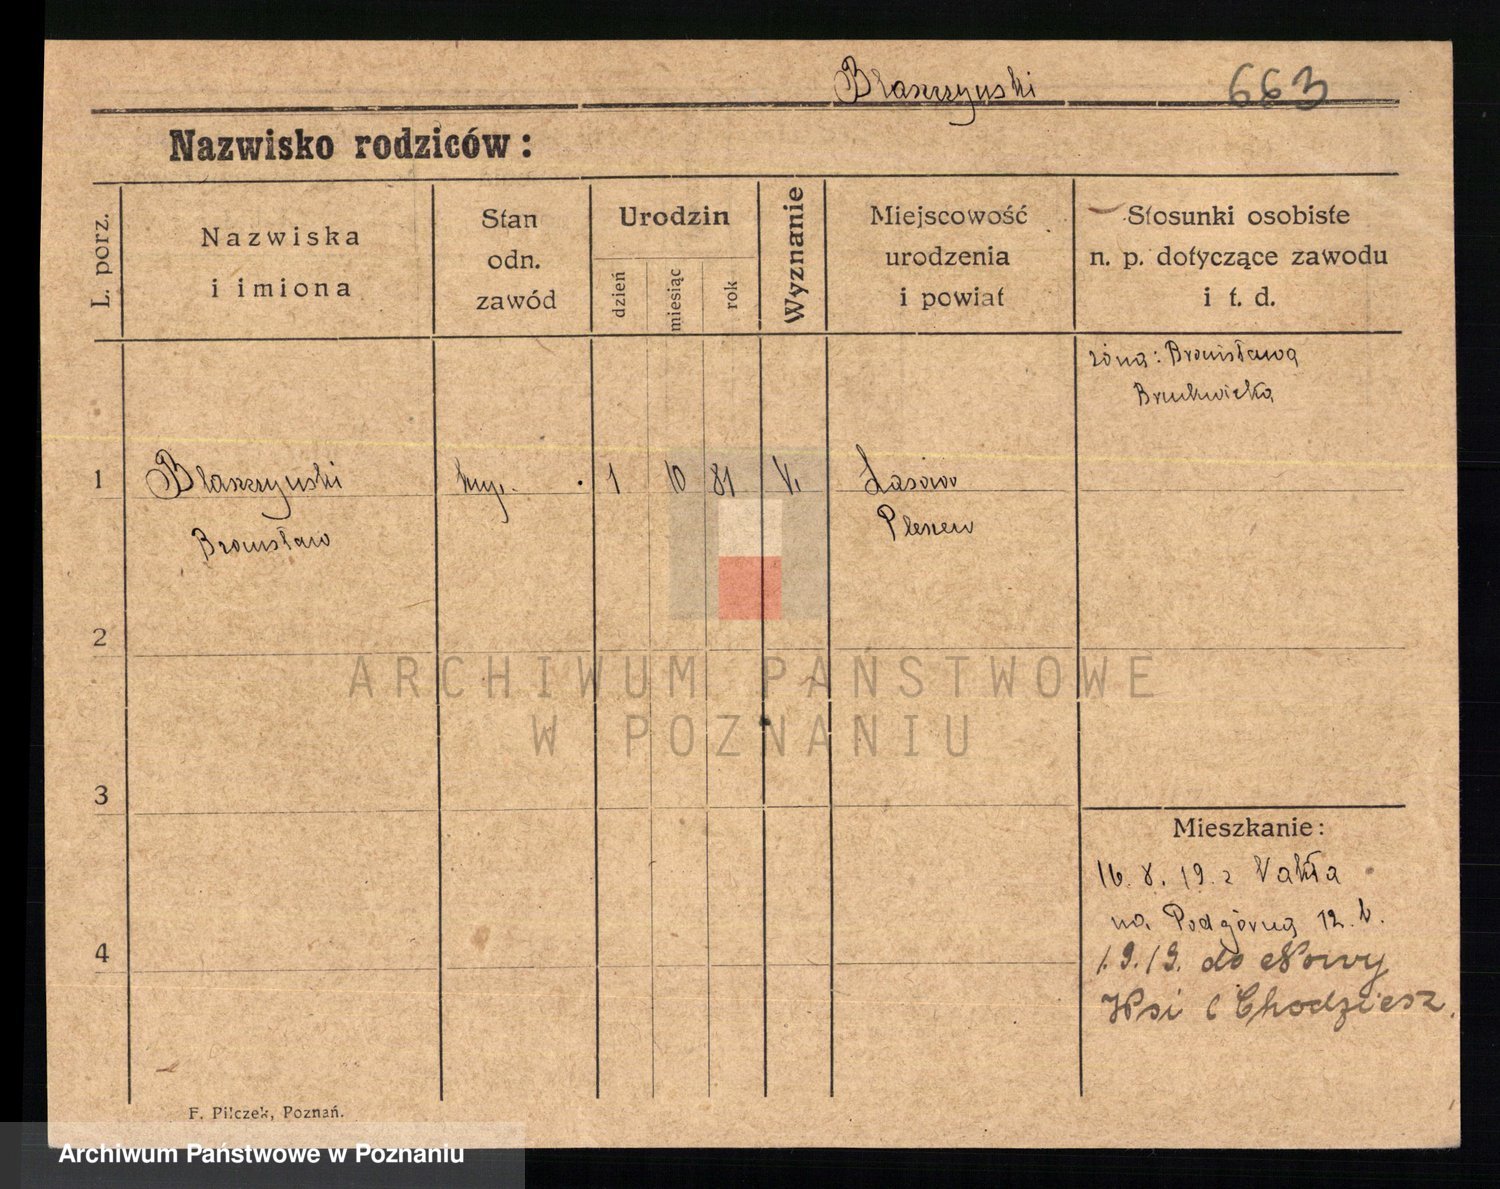 Błaszczyński 663
Nazwisko rodziców:
L. porz.
Nazwiska
i imiona
Stan
odn.
zawód
Urodzin
dzień
miesiąc
rok
Wyznanie
Miejscowość
urodzenia
i powiat
Stosunki osobiste
n. p. dotyczące zawodu
i t. d.
żona: Bronisława
1 Błaszczyński kup. 1 10 81 Łasów
Bronisław Pleszew
2
ARCHIWUM PAŃSTWOWE
W POZNANIU
3
Mieszkanie:
16. 8. 19. z
na Podgórną 12. b.
4
1.9.19. do Nowy
Wsi Chodziesz.
F. Pilczek, Poznań.
Archiwum Państwowe w Poznaniu